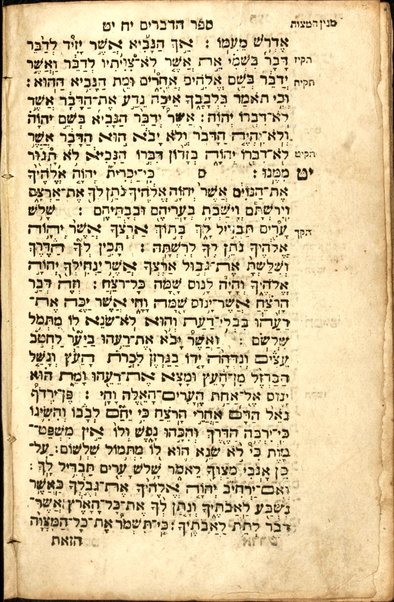 מנין המצות ספר הדברים יח יט
אֶדְרֹשׁ מֵעִמּוֹ : אַךְ הַנָּבִיא אֲשֶׁר יָזִיד לְדַבֵּר
תקיז דָּבָר בִּשְׁמִי אֵת אֲשֶׁר לֹא־צִוִּיתִיו לְדַבֵּר וַאֲשֶׁר
תקיח יְדַבֵּר בְּשֵׁם אֱלֹהִים אֲחֵרִים וּמֵת הַנָּבִיא הַהוּא :
וְכִי תֹאמַר בִּלְבָבֶךָ אֵיכָה נֵדַע אֶת־הַדָּבָר אֲשֶׁר
לֹא־דִבְּרוֹ יְהוָה : אֲשֶׁר יְדַבֵּר הַנָּבִיא בְּשֵׁם יְהוָה
וְלֹא־יִהְיֶה הַדָּבָר וְלֹא יָבֹא הוּא הַדָּבָר אֲשֶׁר
תקיט לֹא־דִבְּרוֹ יְהוָה בְּזָדוֹן דִּבְּרוֹ הַנָּבִיא לֹא תָגוּר
יט מִמֶּנּוּ : ס כִּי־יַכְרִית יְהוָה אֱלֹהֶיךָ
אֶת־הַגּוֹיִם אֲשֶׁר יְהוָה אֱלֹהֶיךָ נֹתֵן לְךָ אֶת־אַרְצָם
וִירִשְׁתָּם וְיָשַׁבְתָּ בְעָרֵיהֶם וּבְבָתֵּיהֶם : שָׁלוֹשׁ
תקך עָרִים תַּבְדִּיל לָךְ בְּתוֹךְ אַרְצְךָ אֲשֶׁר יְהוָה
אֱלֹהֶיךָ נֹתֵן לְךָ לְרִשְׁתָּהּ : תָּכִין לְךָ הַדֶּרֶךְ
וְשִׁלַּשְׁתָּ אֶת־גְּבוּל אַרְצְךָ אֲשֶׁר יַנְחִילְךָ יְהוָה
אֱלֹהֶיךָ וְהָיָה לָנוּס שָׁמָּה כָּל־רֹצֵחַ : וְזֶה דְּבַר
הָרֹצֵחַ אֲשֶׁר־יָנוּס שָׁמָּה וָחָי אֲשֶׁר יַכֶּה אֶת־
רֵעֵהוּ בִּבְלִי־דַעַת וְהוּא לֹא־שֹׂנֵא לוֹ מִתְּמֹל
שִׁלְשֹׁם : וַאֲשֶׁר יָבֹא אֶת־רֵעֵהוּ בַיַּעַר לַחְטֹב
עֵצִים וְנִדְּחָה יָדוֹ בַגַּרְזֶן לִכְרֹת הָעֵץ וְנָשַׁל
הַבַּרְזֶל מִן־הָעֵץ וּמָצָא אֶת־רֵעֵהוּ וָמֵת הוּא
יָנוּס אֶל־אַחַת הֶעָרִים־הָאֵלֶּה וָחָי : פֶּן־יִרְדֹּף
גֹּאֵל הַדָּם אַחֲרֵי הָרֹצֵחַ כִּי יֵחַם לְבָבוֹ וְהִשִּׂיגוֹ
כִּי־יִרְבֶּה הַדֶּרֶךְ וְהִכָּהוּ נָפֶשׁ וְלוֹ אֵין מִשְׁפַּט־
מָוֶת כִּי לֹא שֹׂנֵא הוּא לוֹ מִתְּמוֹל שִׁלְשׁוֹם : עַל־
כֵּן אָנֹכִי מְצַוְּךָ לֵאמֹר שָׁלֹשׁ עָרִים תַּבְדִּיל לָךְ :
וְאִם־יַרְחִיב יְהוָה אֱלֹהֶיךָ אֶת־גְּבֻלְךָ כַּאֲשֶׁר
נִשְׁבַּע לַאֲבֹתֶיךָ וְנָתַן לְךָ אֶת־כָּל־הָאָרֶץ אֲשֶׁר
דִּבֶּר לָתֵת לַאֲבֹתֶיךָ : כִּי־תִשְׁמֹר אֶת־כָּל־הַמִּצְוָה
הזאת